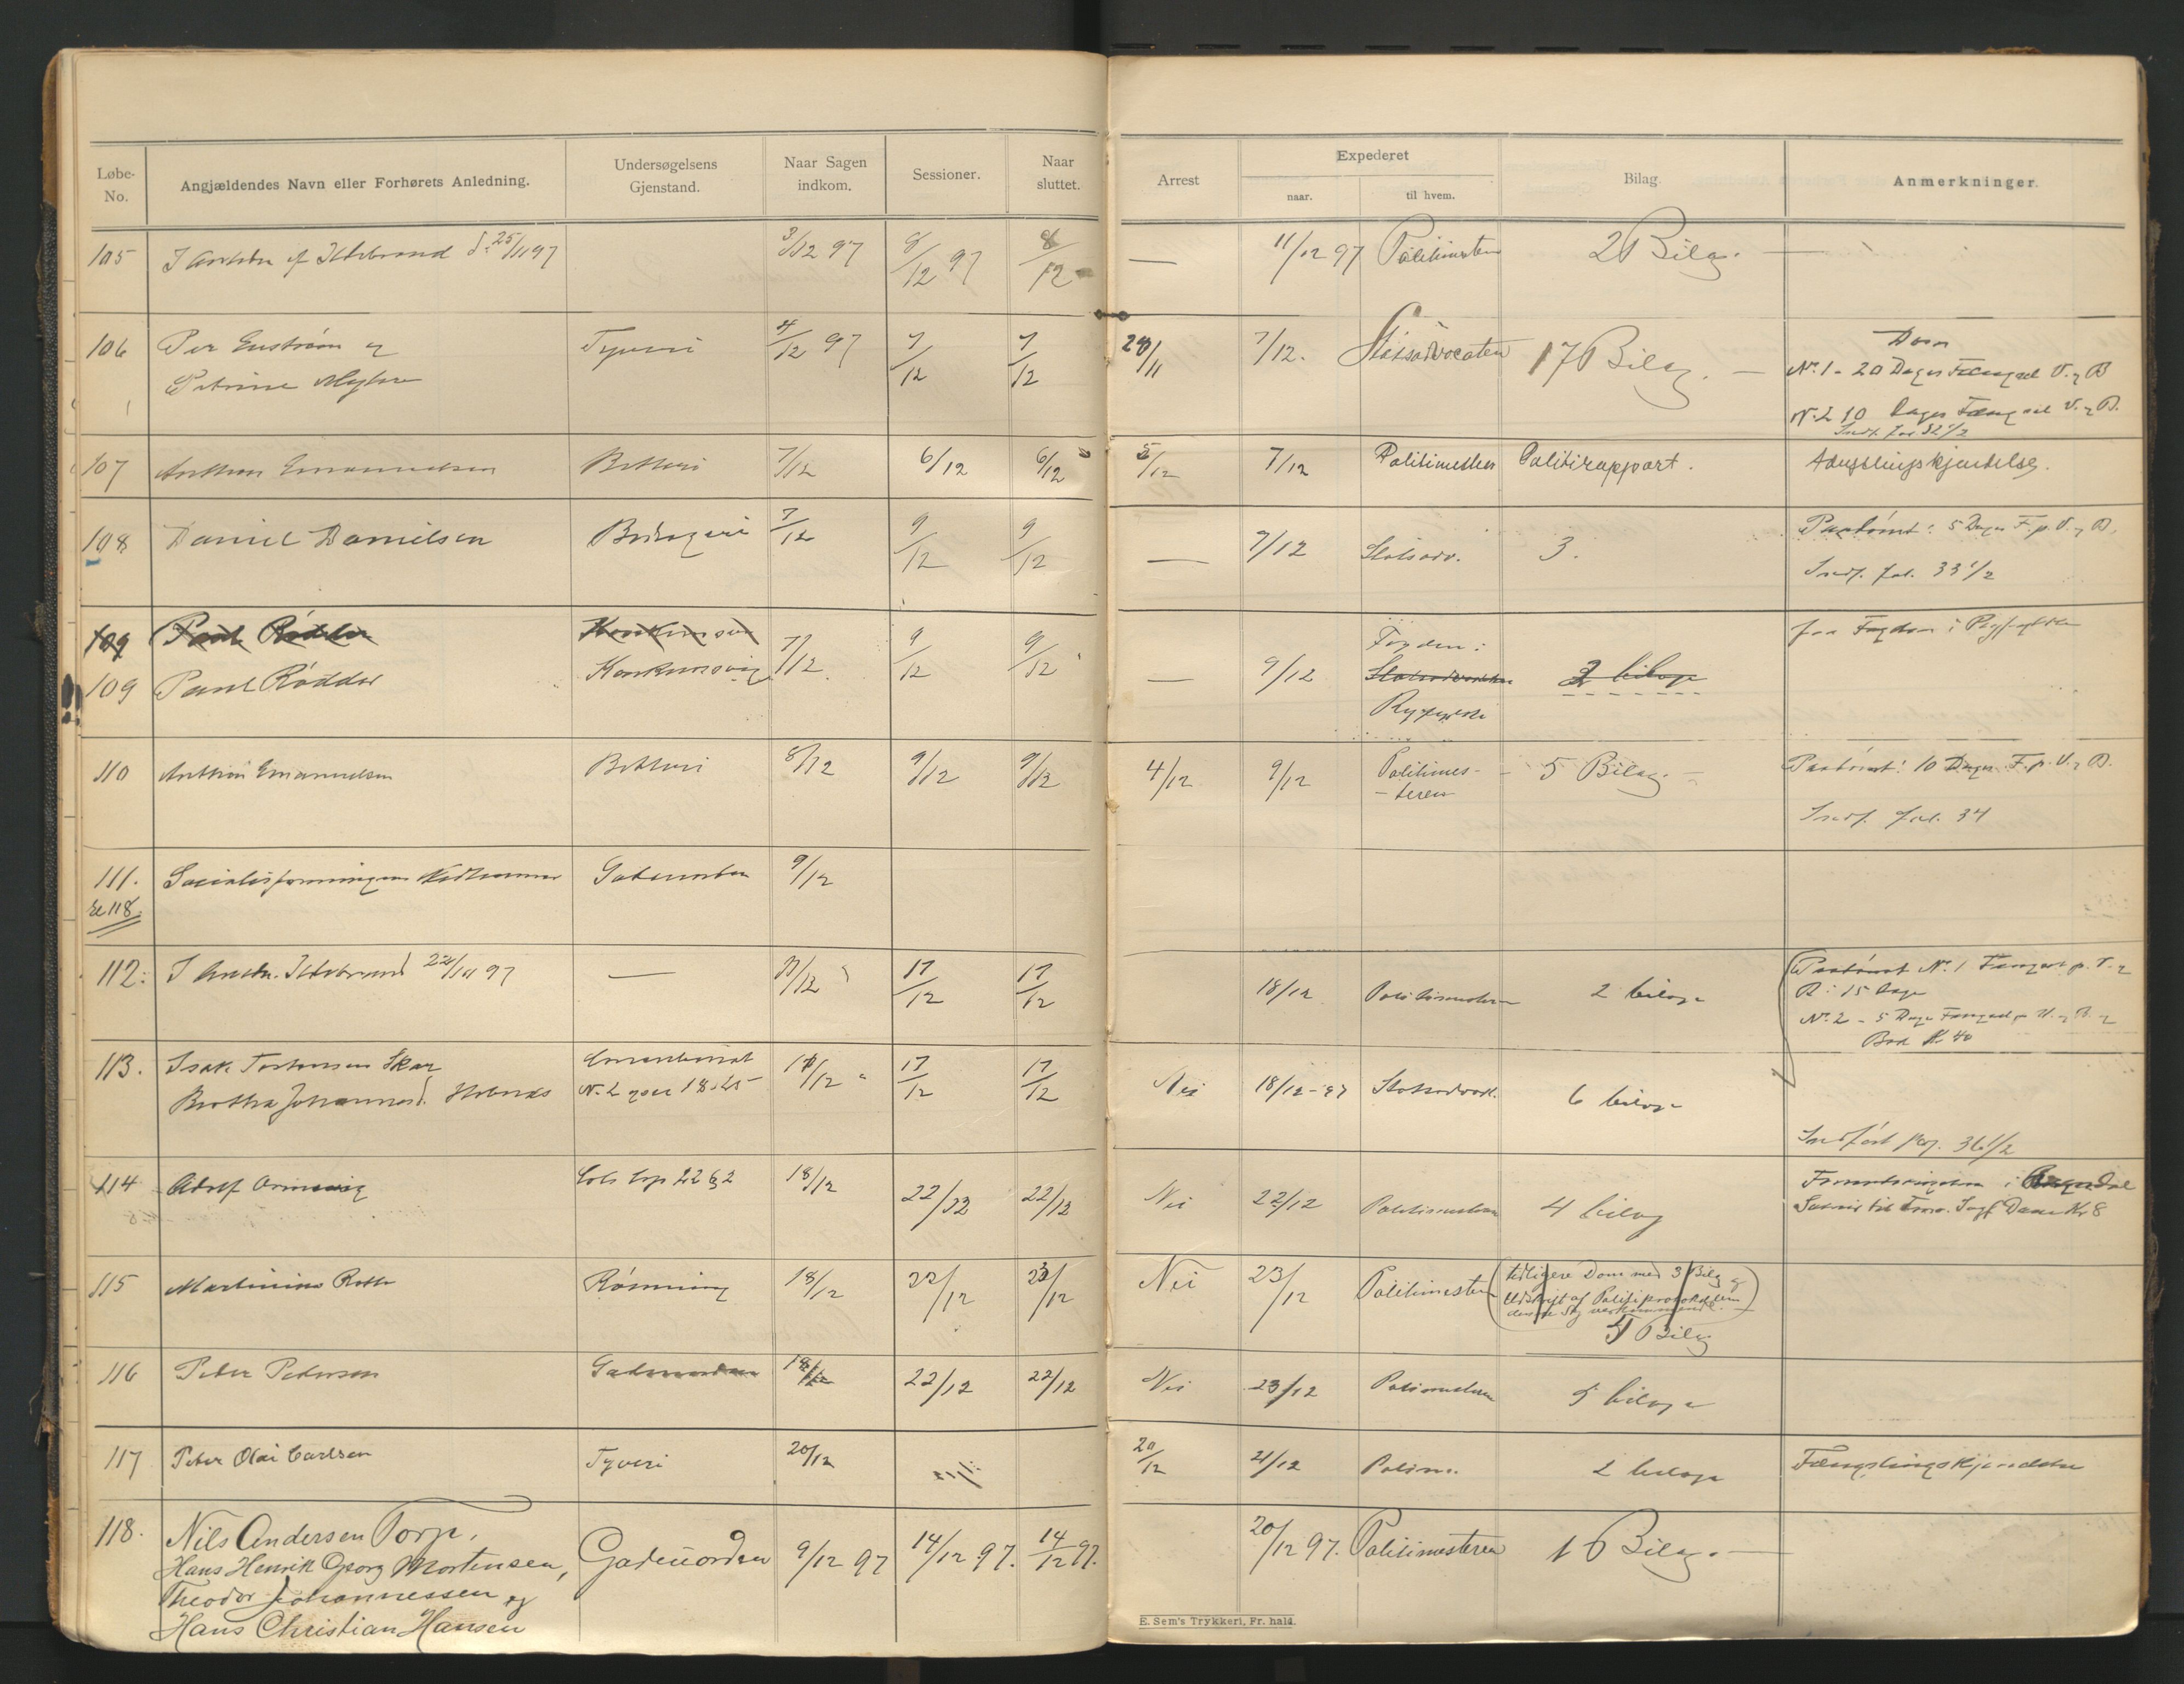 Løbe-No. Angjældendes Navn eller Forhørets Anledning. Undersøgelsens Gjenstand. Naar Sagen indkom. Sessioner. Naar sluttet. Arrest Expederet naar. til hvem. Bilag. Anmerkninger.
105 I Ildebrand d. 25/11 97 3/12 97 8/12 97 8/12 — 11/12 97 Politimesteren 2 Bilag. —
106 Per Enstrøm og Tyveri 4/12 97 7/12 7/12 28/11 7/12. Statsadvocaten 17 Bilag. — Dom
Petrine Myhre No. 1 - 20 Dages Fængsel V. og B
N. 2 10 Dages Fængsel V. og B.
Indf. fol 32 1/2
107 Anthon Emanuelsen Betleri 7/12 6/12 6/12 5/12 7/12 Politimesteren Politirapport. Fængslingskjendelse.
108 Daniel Danielsen Bedrageri 7/12 9/12 9/12 — 9/12 Statsadv. 3. Paadømt: 5 Dages F. p. V. og B.
Indf. fol. 33 1/2
109 Paul Rødder
109 Paul Rødder 7/12 9/12 9/12 — 9/12 Fogden i Ryfylke 2 bilage fra Fogden i Ryfylke
110 Anthon Emanuelsen Betleri 8/12 9/12 9/12 4/12 9/12 Politimes-teren 5 Bilag. — Paadømt: 10 Dages F. p. V. og B.
Indf. fol. 34
111. Gadeuorden 9/12
se 118.
112. I Ildebrand 22/11 97 — 17/12 17/12 18/12 Politimesteren 2 bilage Paadømt No. 1 Fængsel p. V. og
B. i 15 Dage
No. 2 - 5 Dage Fængsel p. V. og B. og
Bod Kr. 40
113. Isak Tostensen Skar Concubinat 17/12 17/12 17/12 Nei 18/12-97 Statsadvok. 6 bilage
Bertha Johannesd. N. 2 18-25
Indført pag. 36 1/2
114 Adolf 22 18/12 22/12 22/12 Nei 22/12 Politimesteren 4 bilag
115 Martinius Roth Rømning 18/12 22/12 23/12 Nei 23/12 Politimesteren tidligere Dom med 3 Bilag og
Udskrift af Politiprotokollen
vedkommende.
5 Bilag
116 Peter Pedersen Gadeuorden 18/12 22/12 22/12 Nei 23/12 Politimesteren 5 bilage
117 Peter Olai Carlsen Tyveri 20/12 20/12 21/12 Politm. 2 bilage Fængslingskjendelse
118. Nils Andersen Torp, Gadeuorden 9/12 97 14/12 97. 14/12 97. 20/12 97. Politimesteren 16 Bilag. —
Hans Henrik Georg Mortensen,
Theodor Johannessen og
Hans Christian Hansen
E. Sem's Trykkeri, Fr. hald.